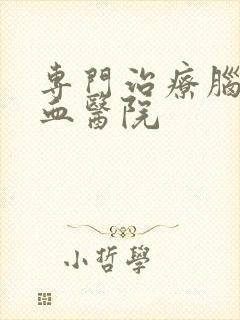 専門治療腦
血醫院
小哲學